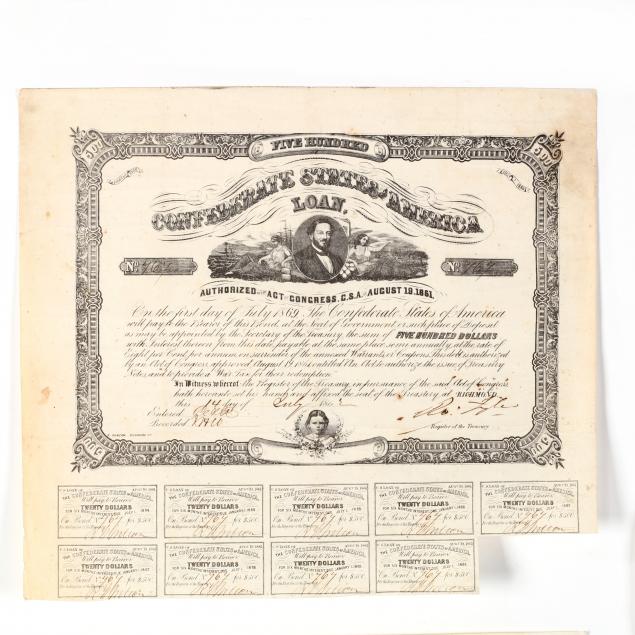 FIVE HUNDRED
500
500
CONFEDERATE STATES OF AMERICA
LOAN,
No 767
No 767
AUTHORIZED BY ACT OF CONGRESS, C.S.A. OF AUGUST 19.1861.
On the first day of July 1869, The Confederate States of America
will pay to the Bearer of this Bond, at the Seat of Government or such place of Deposit
as may be appointed by the Secretary of the Treasury, the sum of FIVE HUNDRED DOLLARS
with Interest thereon from this date, payable at the same place, semi annually, at the rate of
Eight per Cent per annum, on surrender of the annexed Warrants or Coupons. This debt is authorized
by an Act of Congress approved August 19, 1861, entitled An Act to authorize the issue of Treasury
Notes, and to provide a War Tax for their redemption.
In Witness whereof, the Register of the Treasury, in pursuance of the said Act of Congress
hath hereunto set his hand and affixed the seal of the Treasury, at RICHMOND
this 14 day of July 186
Entered
Recorded
Register of the Treasury
500
500
THE CONFEDERATE STATES OF AMERICA,
Will pay to Bearer
TWENTY DOLLARS
FOR SIX MONTHS INTEREST, DUE
On Bond No 767 for $500
THE CONFEDERATE STATES OF AMERICA,
Will pay to Bearer
TWENTY DOLLARS
FOR SIX MONTHS INTEREST, DUE
On Bond No 767 for $500
THE CONFEDERATE STATES OF AMERICA,
Will pay to Bearer
TWENTY DOLLARS
FOR SIX MONTHS INTEREST, DUE
On Bond No 767 for $500
THE CONFEDERATE STATES OF AMERICA,
Will pay to Bearer
TWENTY DOLLARS
FOR SIX MONTHS INTEREST, DUE
On Bond No 767 for $500
THE CONFEDERATE STATES OF AMERICA,
Will pay to Bearer
TWENTY DOLLARS
FOR SIX MONTHS INTEREST, DUE
On Bond No 767 for $500
THE CONFEDERATE STATES OF AMERICA,
Will pay to Bearer
TWENTY DOLLARS
FOR SIX MONTHS INTEREST, DUE
On Bond No 767 for $500
THE CONFEDERATE STATES OF AMERICA,
Will pay to Bearer
TWENTY DOLLARS
FOR SIX MONTHS INTEREST, DUE
On Bond No 767 for $500
THE CONFEDERATE STATES OF AMERICA,
Will pay to Bearer
TWENTY DOLLARS
FOR SIX MONTHS INTEREST, DUE
On Bond No 767 for $500
THE CONFEDERATE STATES OF AMERICA,
Will pay to Bearer
TWENTY DOLLARS
FOR SIX MONTHS INTEREST, DUE
On Bond No 767 for $500